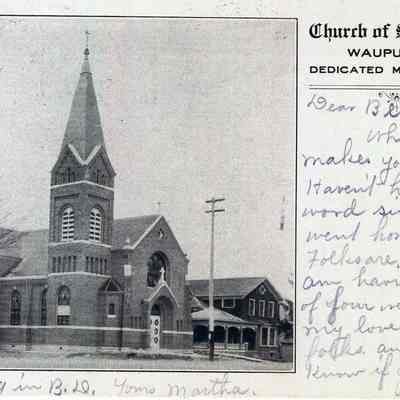 Church of S
WAUPU
DEDICATED M
Dear B
Wh
makes yo
Haven't h
word si
went ho
Folks are
am havi
of four w
my love
folks an
know if y
in B.D. Yours Martha.